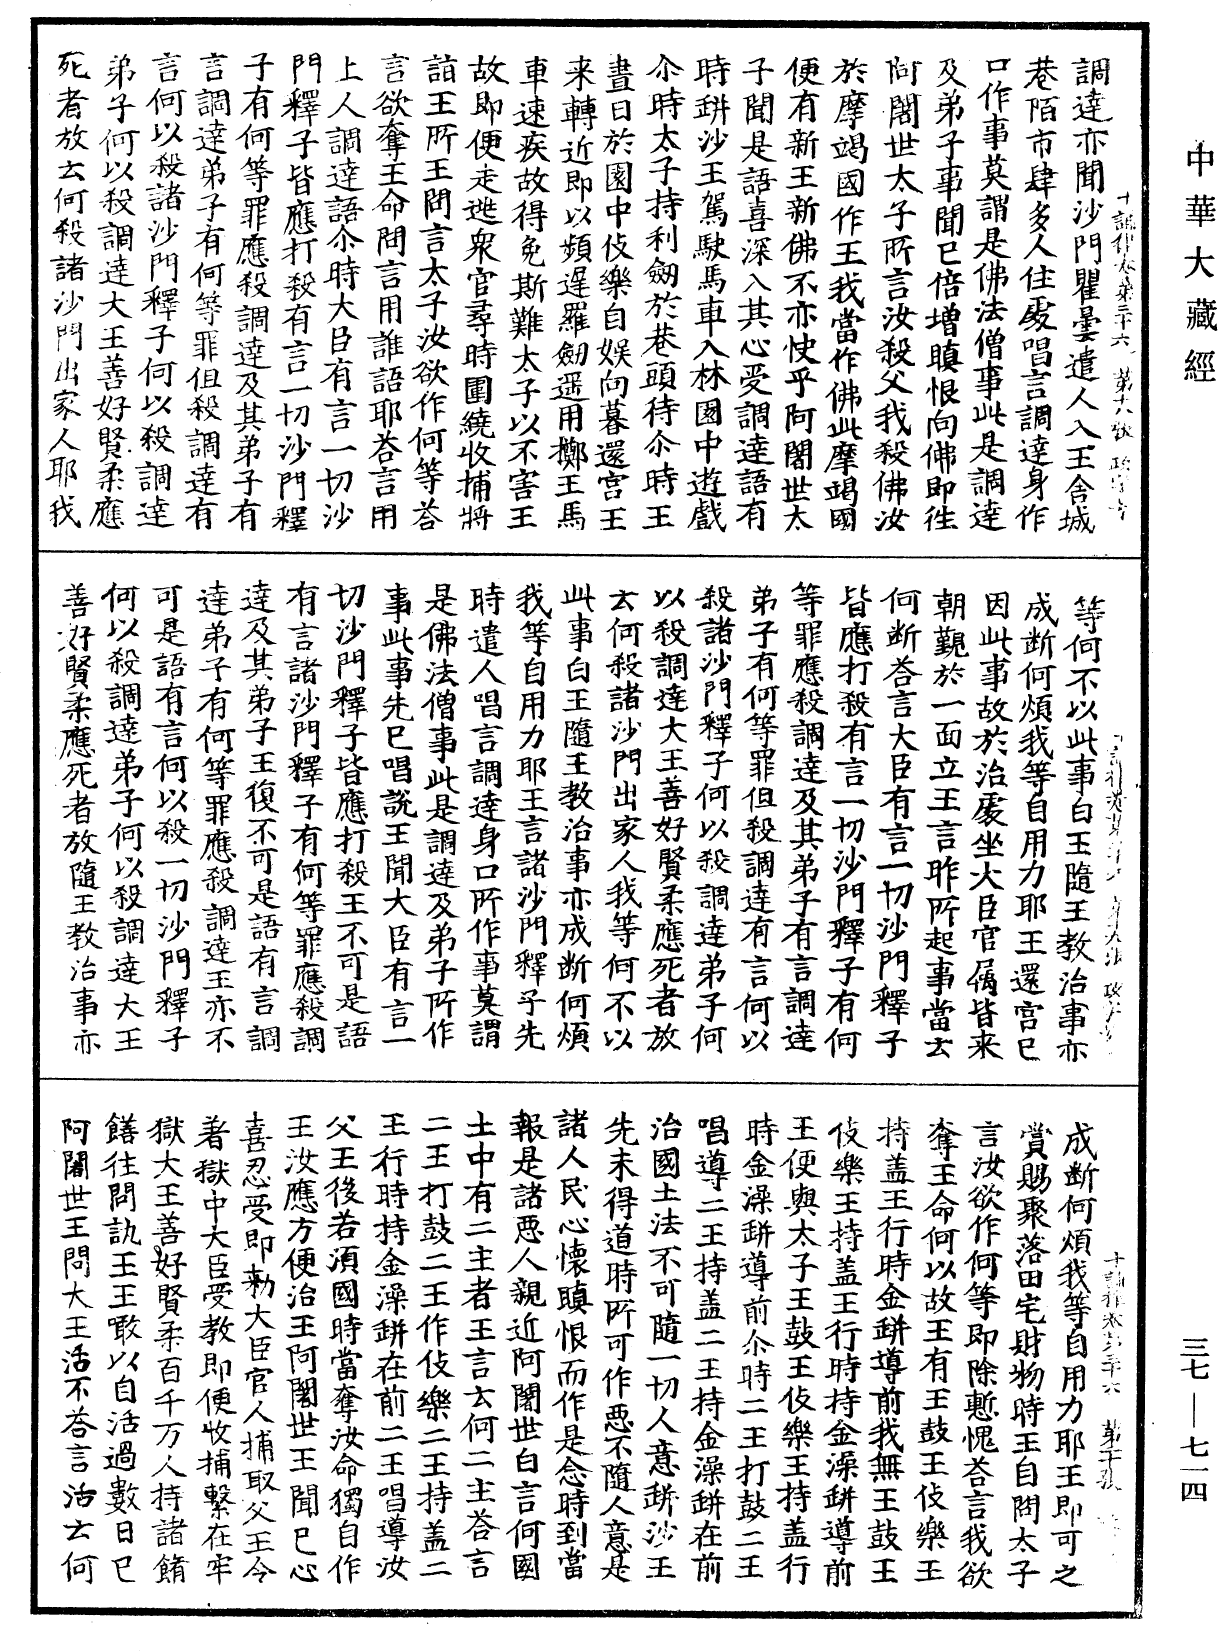 中華大藏經
調達亦聞沙門瞿曇遣人入王舍城
巷陌市肆多人住處唱言調達身作
口作事莫謂是佛法僧事此是調達
及弟子事聞已倍增瞋恨向佛即往
阿闍世太子所言汝殺父我殺佛汝
於摩竭國作王我當作佛此摩竭國
便有新王新佛不亦快乎阿闍世太
子聞是語喜深入其心受調達語有
時缾沙王駕駛馬車入林園中遊戲
尒時太子持利劒於巷頭待尒時王
晝日於園中伎樂自娛向暮還宮王
来轉近即以頻遟羅劒遥用擲王馬
車速疾故得免斯難太子以不害王
故即便走迯衆官尋時圍繞收捕將
詣王所王問言太子汝欲作何等荅
言欲奪王命問言用誰語耶荅言用
上人調達語尒時大臣有言一切沙
門釋子皆應打殺有言一切沙門釋
子有何等罪應殺調達及其弟子有
言調達弟子有何等罪但殺調達有
言何以殺諸沙門釋子何以殺調達
弟子何以殺調達大王善好賢柔應
死者放云何殺諸沙門出家人耶我
等何不以此事白王隨王教治事亦
成断何煩我等自用力耶王還宮已
因此事故於治處坐大臣官属皆来
朝覲於一面立王言昨所起事當云
何断荅言大臣有言一切沙門釋子
皆應打殺有言一切沙門釋子有何
等罪應殺調達及其弟子有言調達
弟子有何等罪但殺調達有言何以
殺諸沙門釋子何以殺調達弟子何
以殺調達大王善好賢柔應死者放
云何殺諸沙門出家人我等何不以
此事白王隨王教治事亦成断何煩
我等自用力耶王言諸沙門釋子先
時遣人唱言調達身口所作事莫謂
是佛法僧事此是調達及弟子所作
事此事先已唱說王聞大臣有言一
切沙門釋子皆應打殺王不可是語
有言諸沙門釋子有何等罪應殺調
達及其弟子王復不可是語有言調
達弟子有何等罪應殺調達王亦不
可是語有言何以殺一切沙門釋子
何以殺調達弟子何以殺調達大王
善好賢柔應死者放隨王教治事亦
成断何煩我等自用力耶王即可之
賞賜聚落田宅財物時王自問太子
言汝欲作何等即除慙愧荅言我欲
奪王命何以故王有王鼓王伎樂王
持盖王行時金缾導前我無王鼓王
伎樂王持盖王行時持金澡缾導前
王便與太子王鼓王伎樂王持盖行
時金澡缾導前尒時二王打鼓二王
唱導二王持盖二王持金澡缾在前
治國土法不可隨一切人意缾沙王
先未得道時所可作惡不隨人意是
諸人民心懷瞋恨而作是念時到當
報是諸惡人親近阿闍世白言何國
土中有二主者王言云何二主荅言
二王打鼓二王作伎樂二王持盖二
王行時持金澡缾在前二王唱導汝
父王後若湏國時當奪汝命獨自作
王汝應方便治王阿闍世王聞已心
喜忍受即勑大臣官人捕取父王令
著獄中大臣受教即便收捕繫在牢
獄大王善好賢柔百千万人持諸餚
饍往問訊王王噉以自活過數日已
阿闍世王問大王活不荅言活云何
三七—七一四